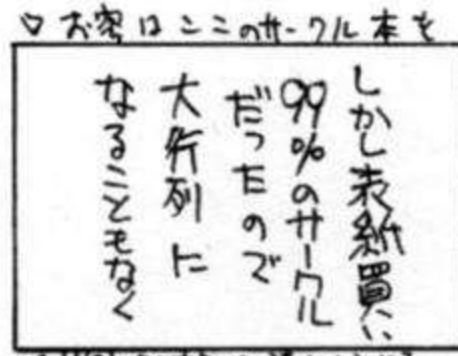 ♡お客はここのサークル本を
しかし表紙買い
99%のサークル
だったので
大行列に
なることもなく